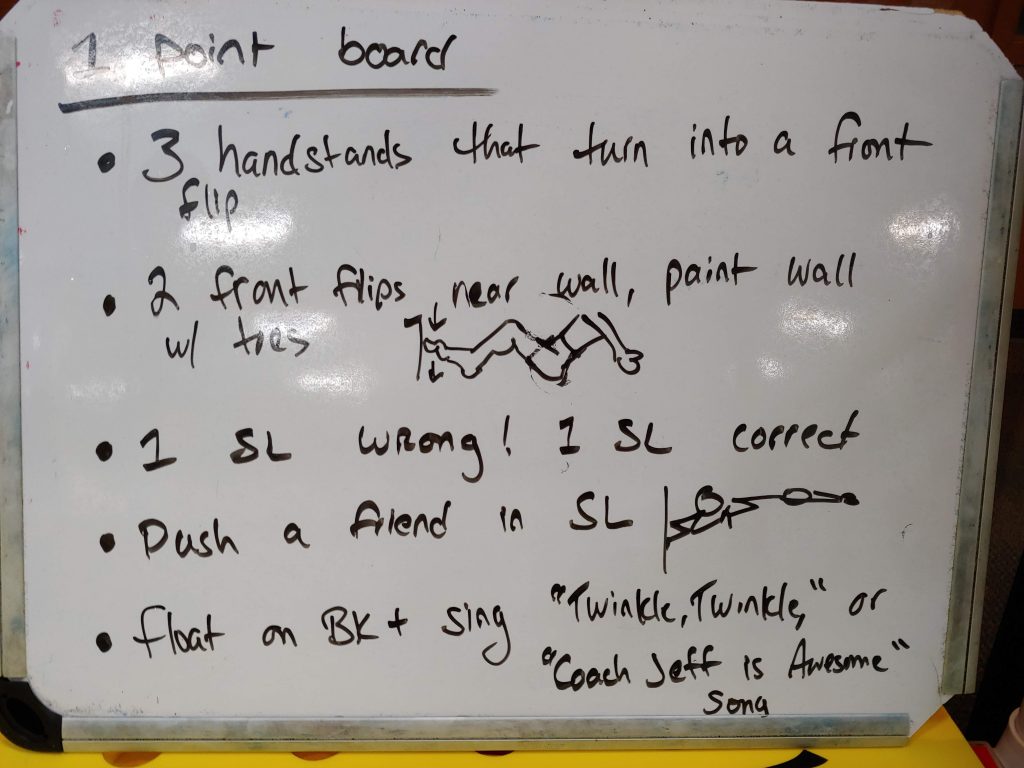 1 point board
• 3 handstands that turn into a front
flip
• 2 front flips near wall, paint wall
w/ toes
• 1 SL wrong! 1 SL correct
• Push a friend in SL
• float on BK + sing "Twinkle, Twinkle," or
"Coach Jeff is Awesome"
Song